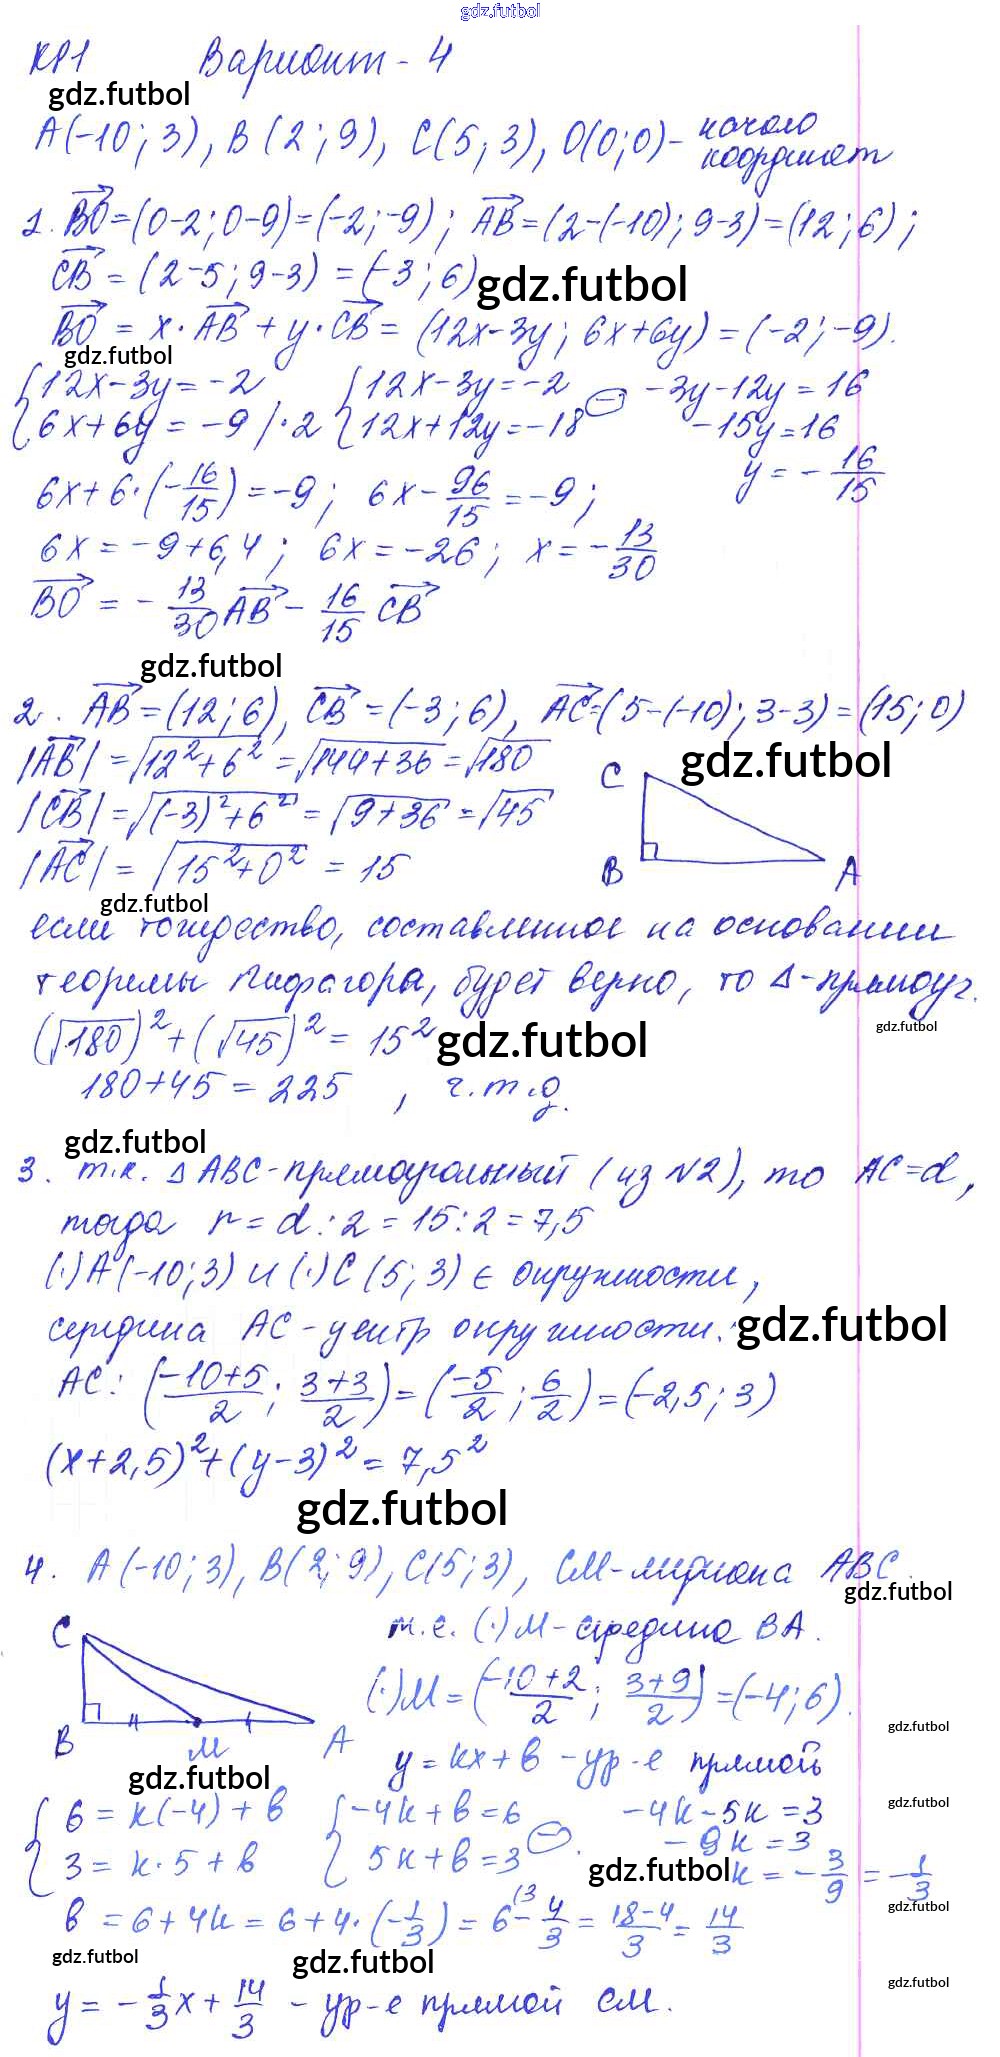 gdz.futbol
КР1 Вариант - 4
gdz.futbol
A(-10; 3), B(2; 9), C(5; 3), O(0;0) - начало координат
1. BO = (0-2; 0-9) = (-2; -9); AB = (2-(-10); 9-3) = (12; 6);
CB = (2-5; 9-3) = (-3; 6) gdz.futbol
BO = x·AB + y·CB = (12x-3y; 6x+6y) = (-2; -9).
gdz.futbol
{12x-3y=-2 {12x-3y=-2 -3y-12y=16
{6x+6y=-9 /·2 {12x+12y=-18 (-) -15y=16
6x+6·(-16/15)=-9; 6x-96/15=-9; y=-16/15
6x=-9+6,4; 6x=-26; x=-13/30
BO = -13/30 AB - 16/15 CB
gdz.futbol
2. AB=(12; 6), CB=(-3; 6), AC=(5-(-10); 3-3)=(15; 0)
|AB|=√(12²+6²)=√(144+36)=√180 gdz.futbol
|CB|=√((-3)²+6²)=√(9+36)=√45
|AC|=√(15²+0²)=15
C
B A
gdz.futbol
если тождество, составленное на основании
теоремы Пифагора, будет верно, то Δ-прямоуг.
gdz.futbol
(√180)²+(√45)²=15² gdz.futbol
180+45=225, ч.т.д.
gdz.futbol
3. т.к. Δ ABC-прямоугольный (из N2), то AC=d,
тогда r=d:2=15:2=7,5
(·)A(-10;3) и (·)C(5;3) ∈ окружности,
середина AC-центр окружности. gdz.futbol
AC: ((-10+5)/2; (3+3)/2)=(-5/2; 6/2)=(-2,5; 3)
(x+2,5)²+(y-3)²=7,5²
gdz.futbol
4. A(-10;3), B(2;9), C(5;3), CM-медиана ABC.
gdz.futbol
C
B M A
т.е. (·)M-середина BA.
(·)M=((-10+2)/2; (3+9)/2)=(-4;6).
gdz.futbol
y=kx+b - ур-е прямой
gdz.futbol
{6=k(-4)+b {-4k+b=6 -4k-5k=3
gdz.futbol
{3=k·5+b {5k+b=3 (-). -9k=3
gdz.futbol k=-3/9=-1/3
b=6+4k=6+4·(-1/3)=6^(3-4/3=(18-4)/3=14/3
gdz.futbol
gdz.futbol gdz.futbol
gdz.futbol
y=-1/3x+14/3 - ур-е прямой CM.